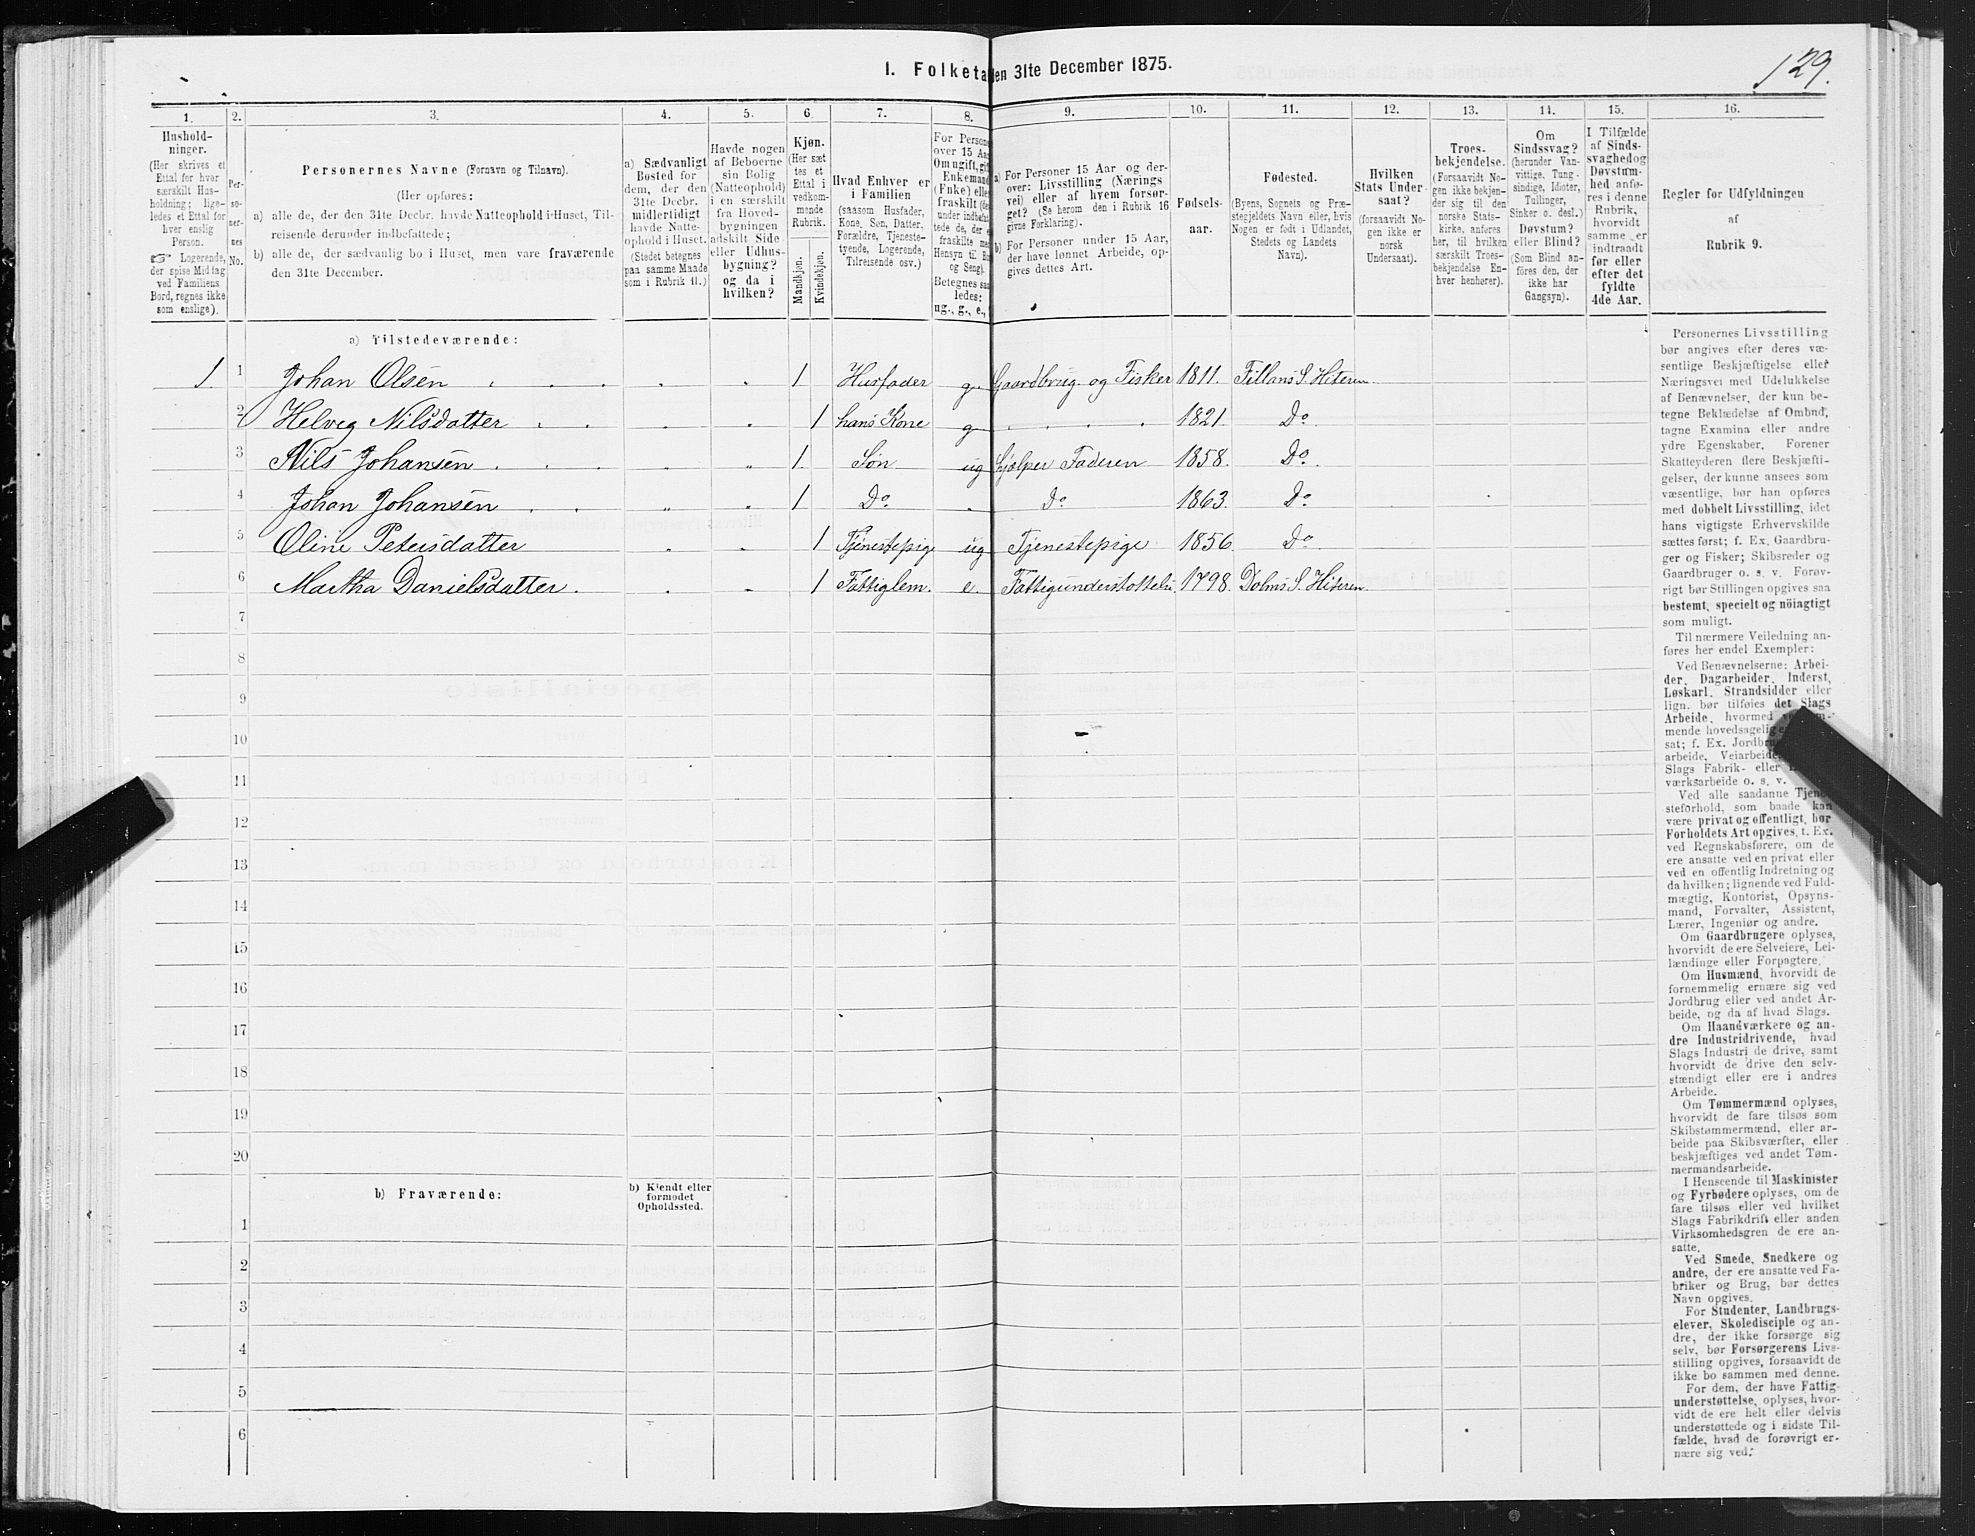 1. Folketa
den 31te December 1875.
129.
1.
2.
3.
4.
5.
6.
7.
8.
9.
10.
11.
12.
13.
14.
15.
16.
Hushold-
ninger.
(Her skrives et
Ettal for hver
særskilt Hus-
holdning; lige-
ledes et Ettal for
hver enslig
Person.
☞ Logerende,
der spise Middag
ved Familiens
Bord, regnes ikke
som enslige).
Per-
so-
ner-
nes
No.
Personernes Navne (Fornavn og Tilnavn).
(Her opføres:
a) alle de, der den 31te Decbr. havde Natteophold i Huset, Til-
reisende derunder indbefattede;
b) alle de, der sædvanlig bo i Huset, men vare fraværende
den 31te December.
a) Sædvanligt
Bosted for
dem, der den
31te Decbr.
midlertidigt
havde Natte-
ophold i Huset.
(Stedet betegnes
paa samme Maade
som i Rubrik 11.)
Havde nogen
af Beboerne
sin Bolig
(Natteophold)
i en særskilt
fra Hoved-
bygningen
adskilt Side-
eller Udhus-
bygning?
og da i
hvilken?
Kjøn.
(Her sæt-
tes et
Ettal i
vedkom-
mende
Rubrik.
Mandkjøn.
Kvindekjøn.
Hvad Enhver er
i Familien
(saasom Husfader,
Kone, Søn, Datter,
Forældre, Tjeneste-
tyende, Logerende,
Tilreisende osv.)
For Person
over 15 Aa
Om ugift, gif
Enkemand
(Enke) elle
fraskilt
under indbefat-
tede de, der e
fraskilte me
Hensyn til Bo
og Seng).
Betegnes saa
ledes:
ug., g., e.,
a) For Personer 15 Aar og der-
over: Livsstilling (Nærings
vei) eller af hvem forsør-
get? (Se herom den i Rubrik 16
givne Forklaring).
b) For Personer under 15 Aar,
der have lønnet Arbeide, op-
gives dettes Art.
Fødsels-
aar.
Fødested.
(Byens, Sognets og Præ-
stegjeldets Navn eller, hvis
Nogen er født i Udlandet,
Stedets og Landets
Navn).
Hvilken
Stats Under-
saat?
(forsaavidt No-
gen ikke er
norsk
Undersaat).
Troes-
bekjendelse.
(Forsaavidt No-
gen ikke bekjen-
der sig til den
norske Stats-
kirke, anføres
her, til hvilken
særskilt Troes-
bekjendelse En-
hver henhører).
Om
Sindssvag?
(herunder Van-
vittige, Tung-
sindige, Idioter,
Tullinger,
Sinker o. desl.)
Døvstum?
eller Blind?
(Som Blind an-
føres den, der
ikke har
Gangsyn).
I Tilfælde
af Sinds-
svaghed og
Døvstum-
hed anfø-
res i denne
Rubrik,
hvorvidt
samme er
indtraadt
før eller
efter det
fyldte
4de Aar.
Regler for Udfyldningen
af
Rubrik 9.
a) Tilstedeværende:
1. 1 Johan Olsen 1 Husfader g. Gaardbrug. og Fisker 1811. Fillans S. Hiteren.
2 Helveg Nilsdatter 1 hans Kone g. 1821. Do.
3 Nils Johansen 1. Søn ug Hjælper Faderen 1858. Do.
4 Johan Johansen 1 Do. Do 1863. Do
5 Oline Petersdatter 1 Tjenestepige ug Tjenestepige 1856. Do
6 Martha Danielsdatter. 1 Fattiglem. e. Fattigunderstøttelse 1798. Dolms S. Hiteren.
7
8
9
10
11
12
13
14
15
16
17
18
19
20
b) Fraværende:
b) Kjendt eller
formodet
Opholdssted.
1
2
3
4
5
6
Personernes Livsstilling
bør angives efter deres væ-
sentlige Beskjæftigelse eller
Næringsvei med Udelukkelse
af Benævnelser, der kun be-
tegne Beklædelse af Ombud,
tagne Examina eller andre
ydre Egenskaber. Forener
Skatteyderen flere Beskjæfti-
gelser, der kunne ansees som
væsentlige, bør han opføres
med dobbelt Livsstilling, idet
hans vigtigste Erhvervskilde
sættes først; f. Ex. Gaardbru-
ger og Fisker; Skibsreder og
Gaardbruger o. s. v. Forøv-
rigt bør Stillingen opgives saa
bestemt, specielt og nöiagtigt
som muligt.
Til nærmere Veiledning an-
føres her endel Exempler:
Ved Benævnelserne: Arbei-
der, Dagarbeider, Inderst,
Løskarl, Strandsidder eller
lign. bør tilføies det Slags
Arbeide, hvormed
mende hovedsagelig
sat; f. Ex. Jordbr
arbeide, Veiarbeide
Slags Fabrik- eller
værksarbeide o. s. v.
Ved alle saadanne Tjene-
steforhold, som baade kan
være privat og offentligt, bør
Forholdets Art opgives, t. Ex.
ved Regnskabsførere, om de
ere ansatte ved en privat eller
ved en offentlig Indretning og
da hvilken; lignende ved Fuld-
mægtig, Kontorist, Opsyns-
mand, Forvalter, Assistent,
Lærer, Ingeniør og andre.
Om Gaardbrugere oplyses,
hvorvidt de ere Selveiere, Lei-
lændinge eller Forpagtere.
Om Husmænd, hvorvidt de
fornemmelig ernære sig ved
Jordbrug eller ved andet Ar-
beide, og da af hvad Slags.
Om Haandværkere og an-
dre Industridrivende, hvad
Slags Industri de drive, samt
hvorvidt de drive den selv-
stændigt eller ere i andres
Arbeide.
Om Tømmermænd oplyses,
hvorvidt de fare tilsøs som
Skibstømmermænd, eller ar-
beide paa Skibsværfter, eller
beskjæftiges ved andet Tøm-
mermandsarbeide.
I Henseende til Maskinister
og Fyrbødere oplyses, om de
fare tilsøs eller ved hvilket
Slags Fabrikdrift eller anden
Virksomhedsgren de ere an-
satte.
Ved Smede, Snedkere og
andre, der ere ansatte ved Fa-
briker og Brug, bør dettes
Navn opgives.
For Studenter, Landbrugs-
elever, Skoledisciple og an-
dre, der ikke forsørge sig
selv, bør Forsørgerens Livs-
stilling opgives, forsaavidt de
ikke bo sammen med denne.
For dem, der have Fattig-
understøttelse, oplyses, hvor-
vidt de ere helt eller delvis
understøttede og i sidste Til-
fælde, hvad de forøvrigt er-
nære sig ved.